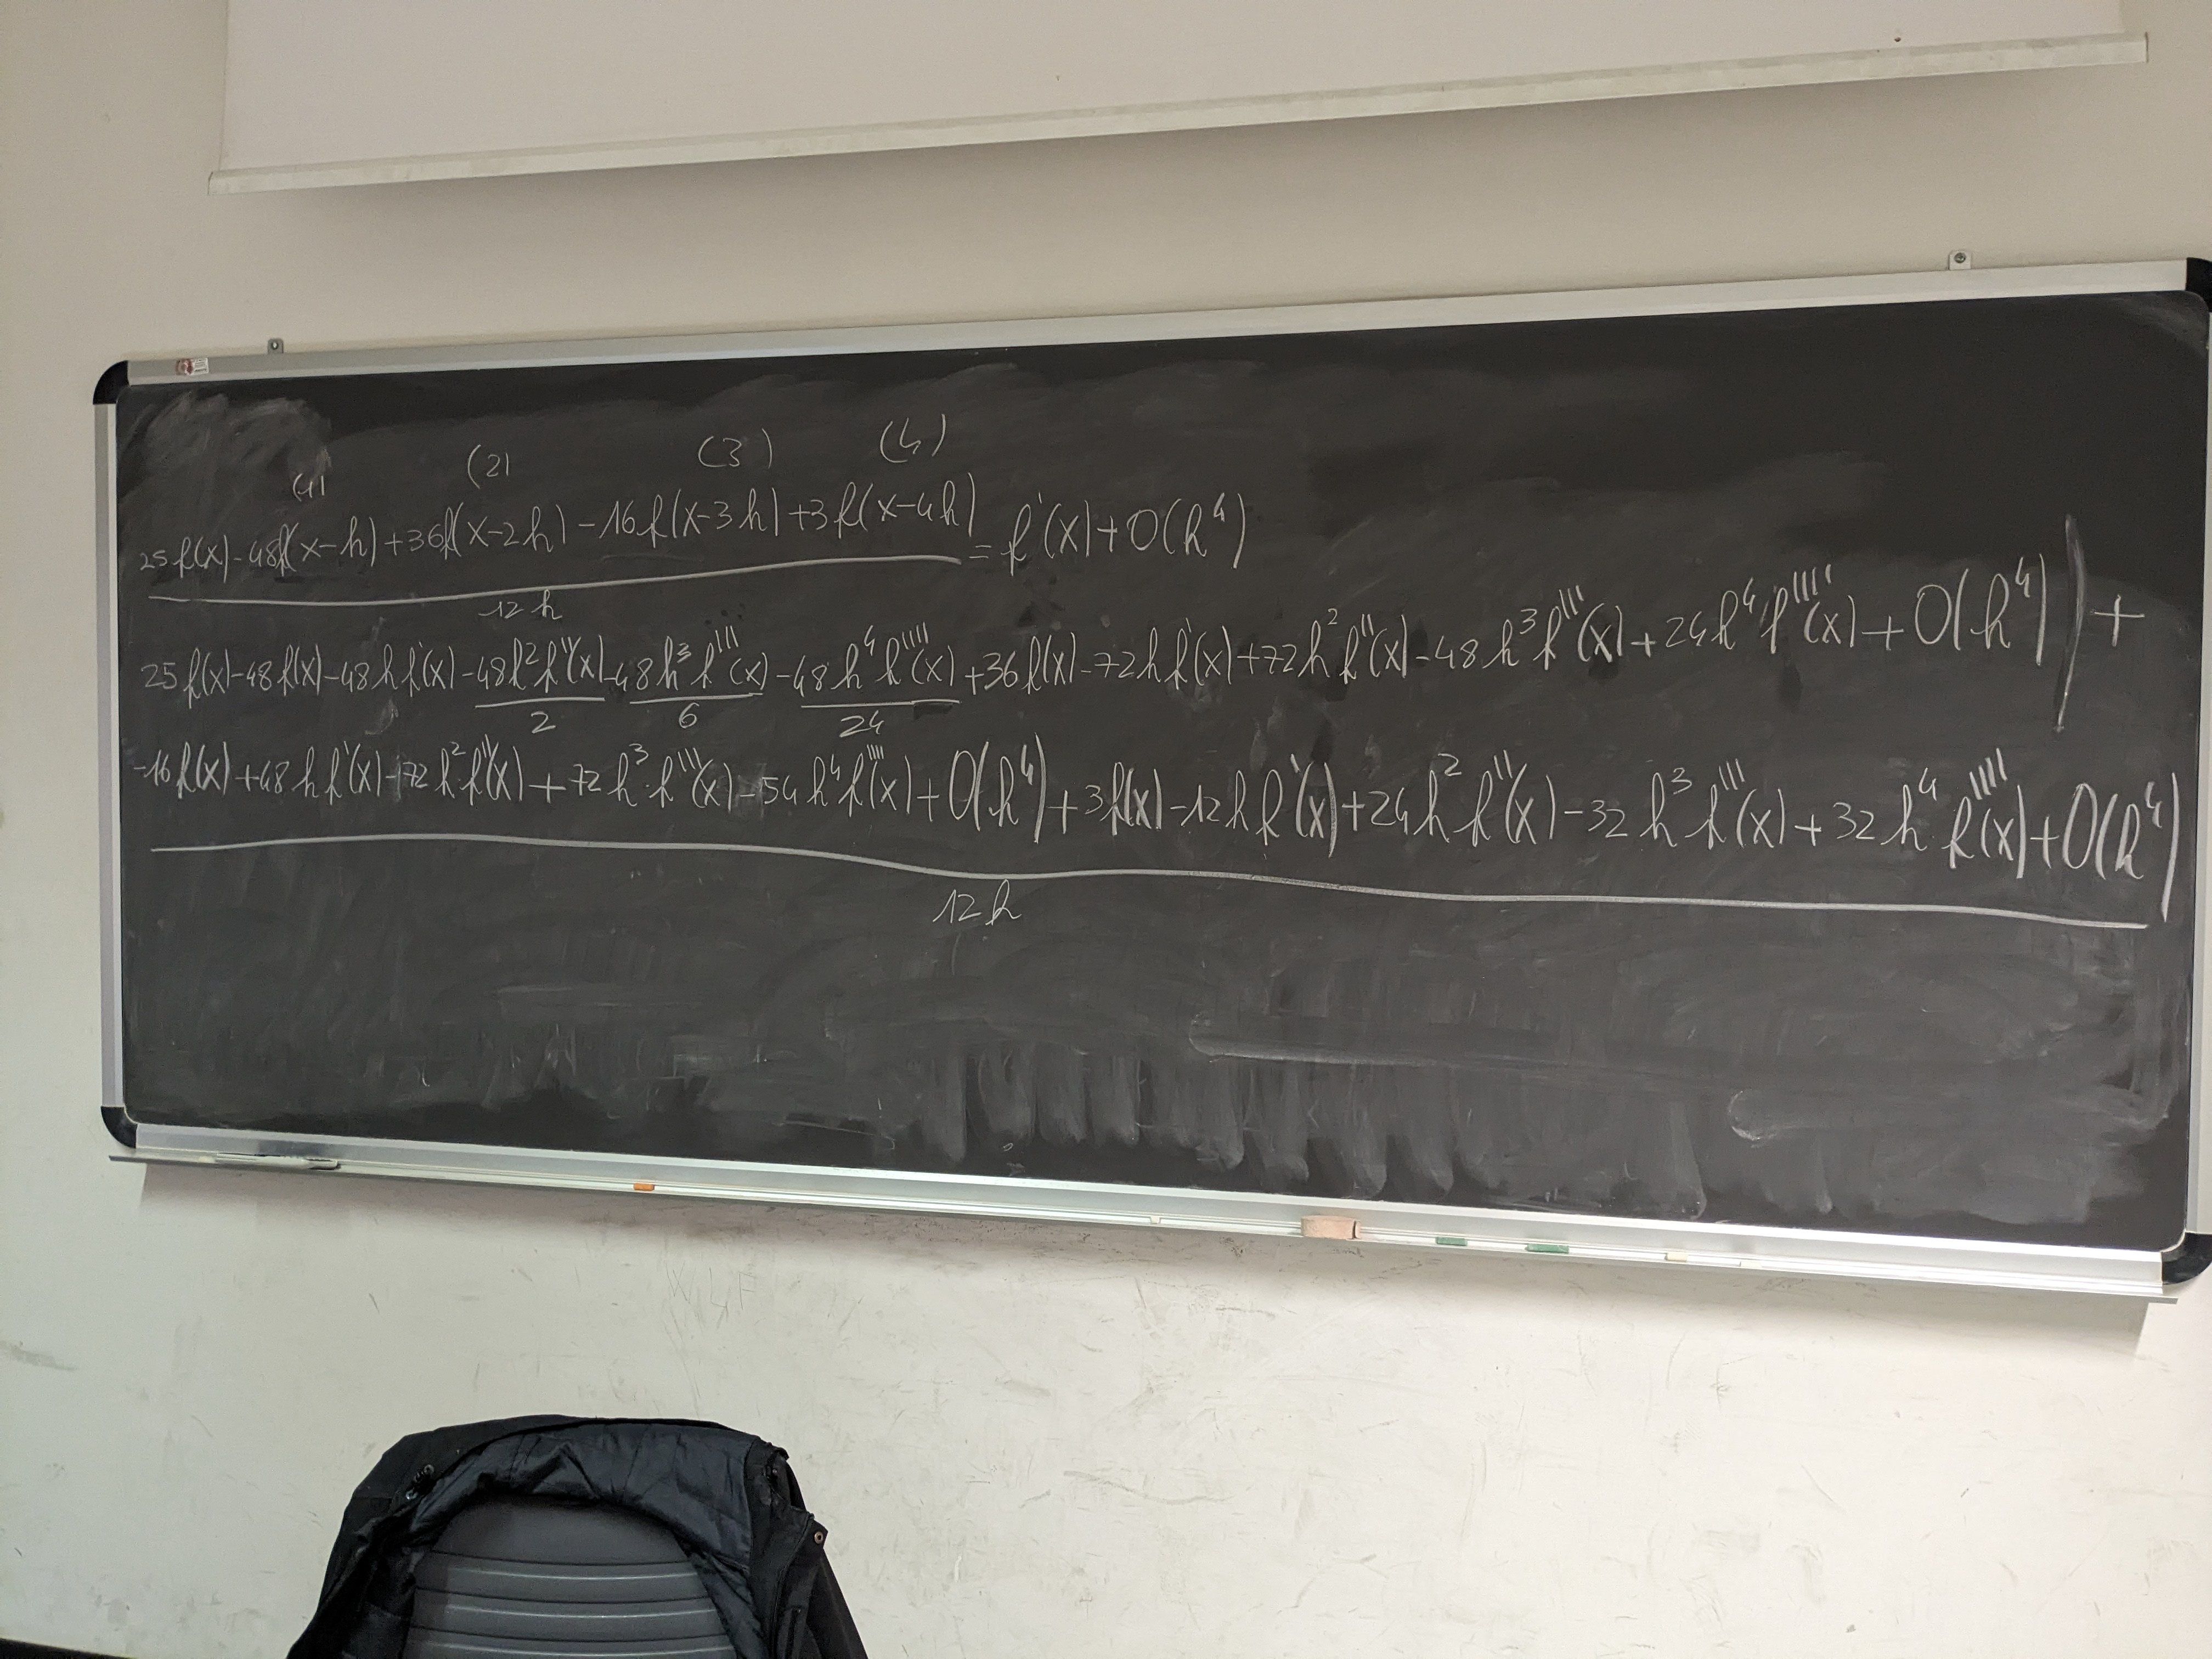 (1) (2) (3) (4)
25f(x)-48f(x-h)+36f(x-2h)-16f(x-3h)+3f(x-4h) = f'(x)+O(h⁴)
12h
25f(x)-48f(x)-48hf'(x)-48h²f''(x)-48h³f'''(x)-48h⁴f''''(x)+36f(x)-72hf'(x)+72h²f''(x)-48h³f'''(x)+24h⁴f''''(x)+O(h⁴)) +
2 6 24
-16f(x)+48hf'(x)-72h²f''(x)+72h³f'''(x)-54h⁴f''''(x)+O(h⁴)+3f(x)-12hf'(x)+24h²f''(x)-32h³f'''(x)+32h⁴f''''(x)+O(h⁴)
12h